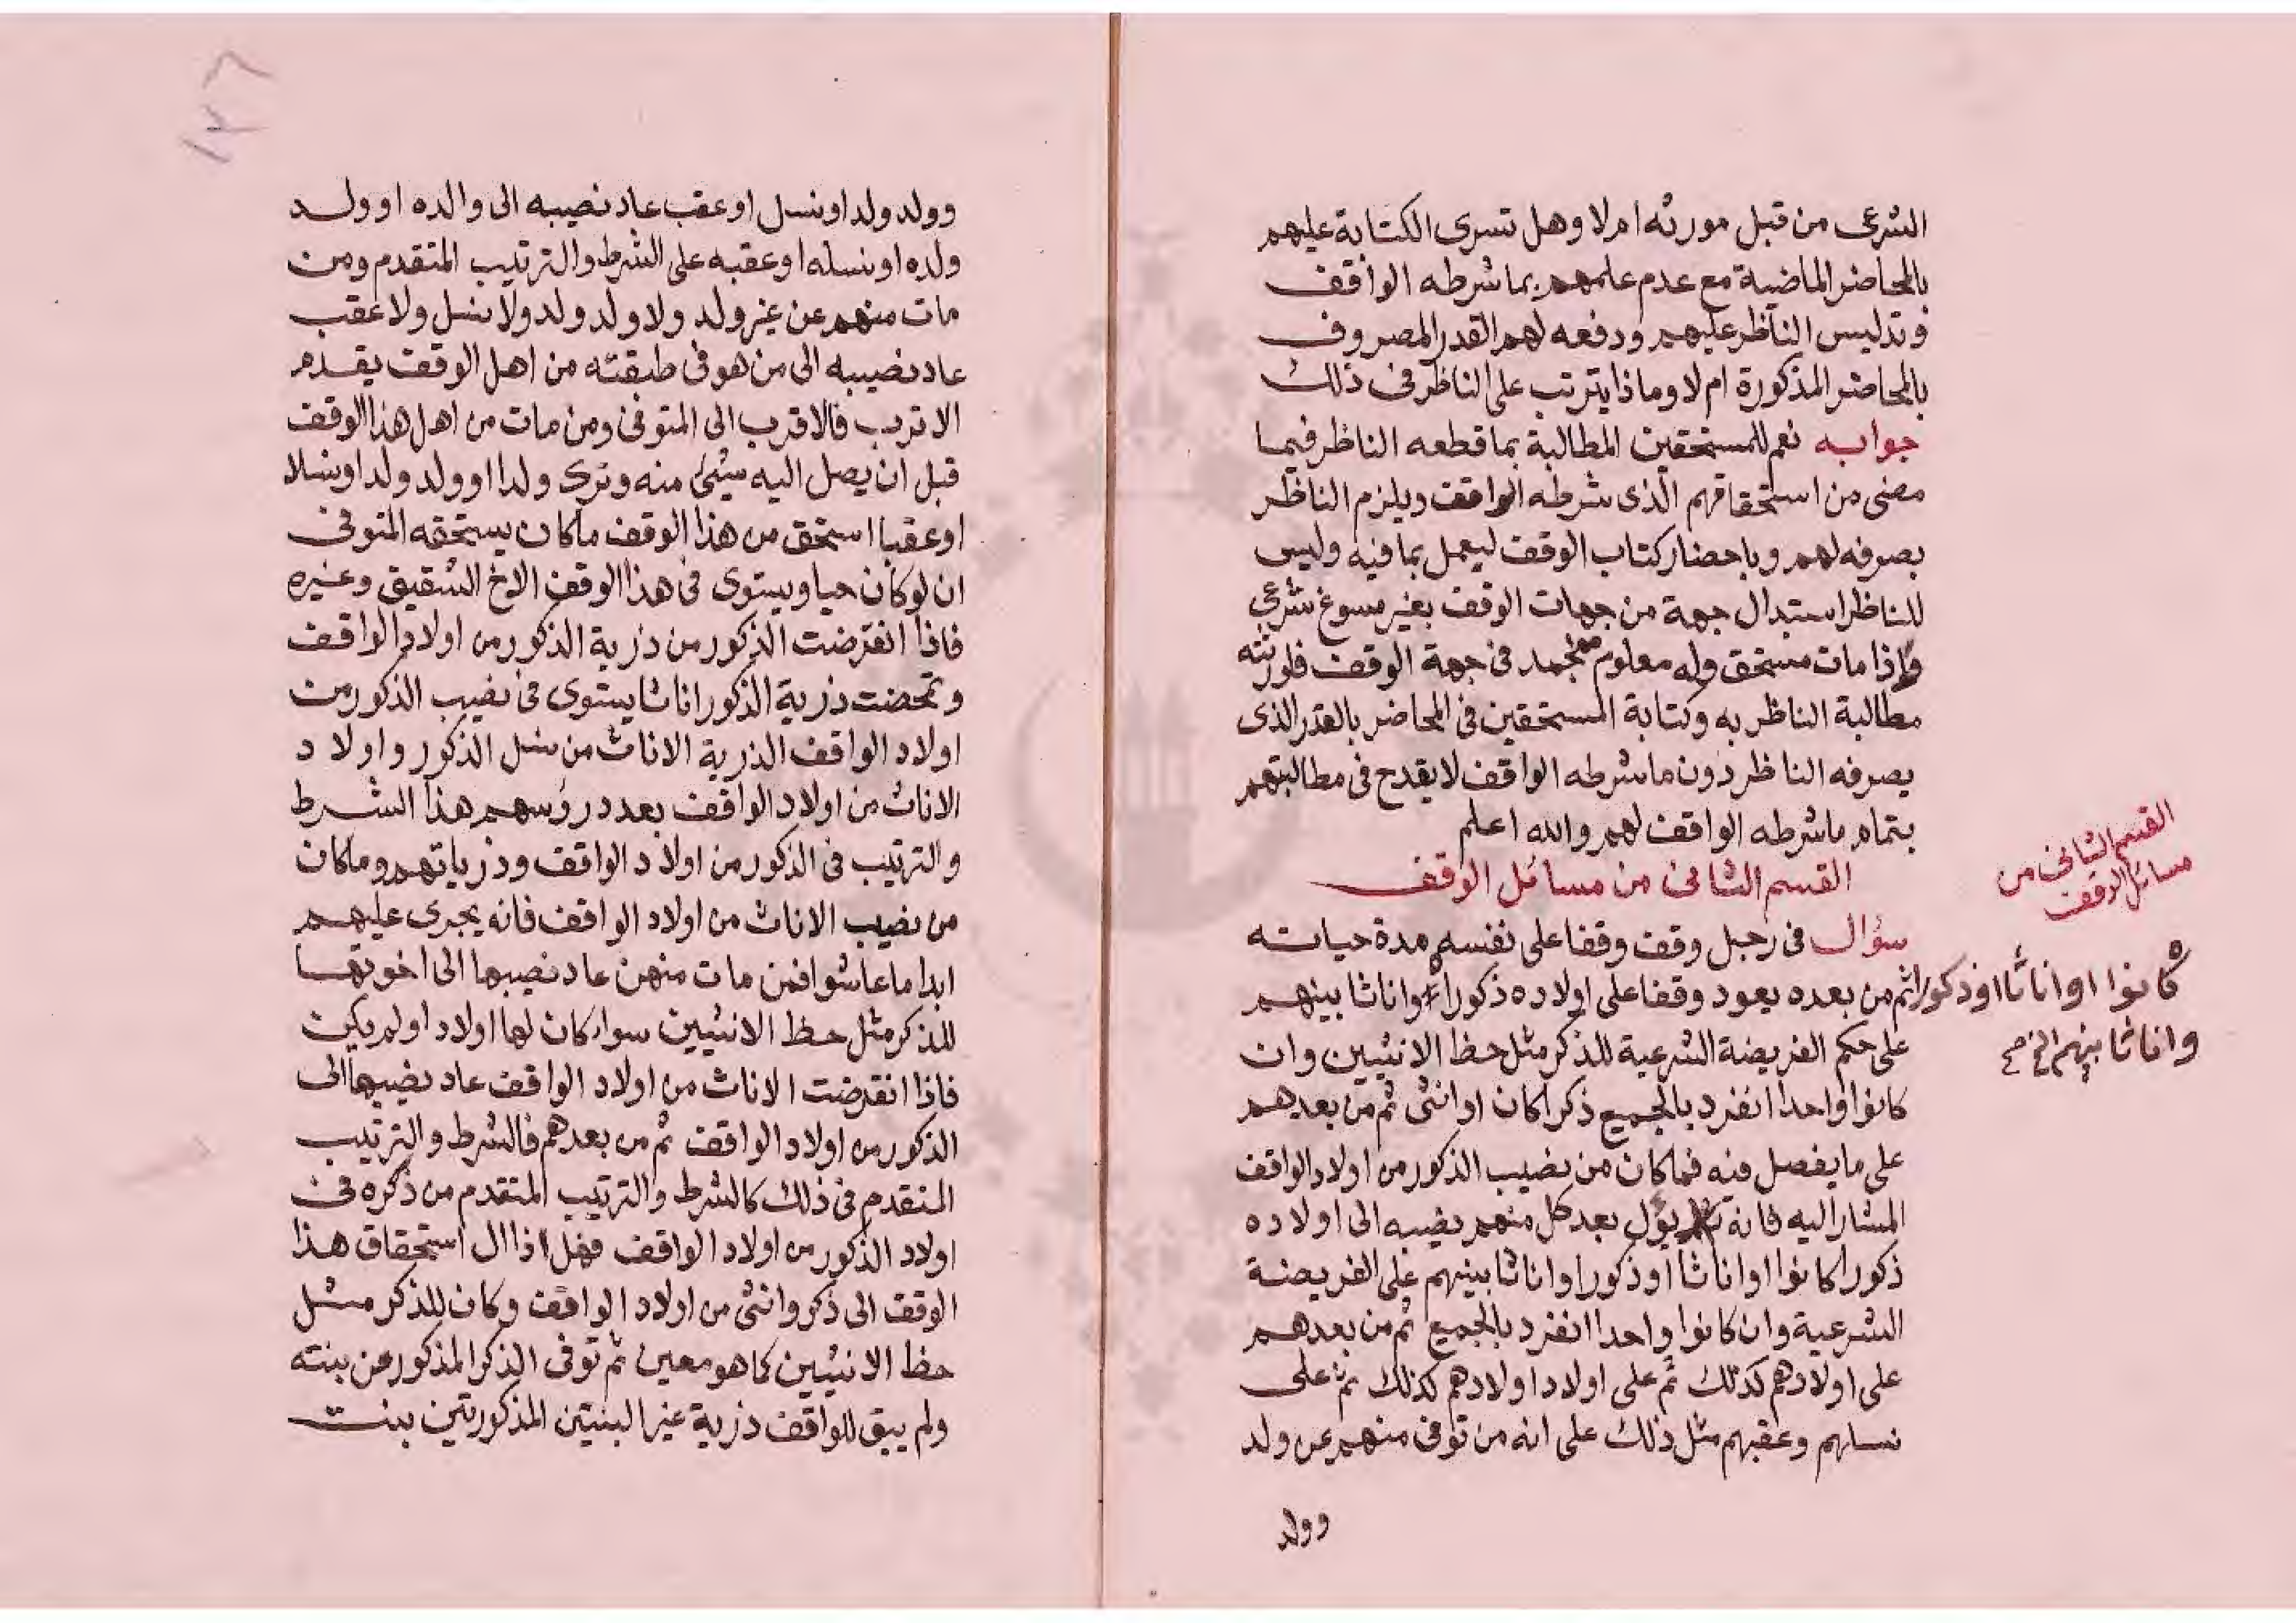 الشرعى من قبل مورثه ام لا وهل تسرى الكتابة عليهم
بالمحاضر الماضية مع عدم علمهم بما شرطه الواقف
وتدليس الناظر عليهم ودفعه لهم القدر المصروف
بالمحاضر المذكورة ام لا وماذا يترتب على الناظر فى ذلك
جوابه نعم للمستحقين المطالبة بما قطعه الناظر فيما
مضى من استحقاقهم الذى شرطه الواقف ويلزم الناظر
بصرفه لهم وباحضار كتاب الوقف ليعمل بما فيه وليس
للناظر استبدال جهة من جهات الوقف بغير مسوغ شرعى
واذا مات مستحق وله معلوم منجمد فى جهة الوقف فلورثته
مطالبة الناظر به وكتابة المستحقين فى المحاضر بالقدر الذى
يصرفه الناظر دون ما شرطه الواقف لا يقدح فى مطالبتهم
بتمام ما شرطه الواقف لهم والله اعلم
القسم الثانى من مسائل الوقف
القسم الثانى من
مسائل الوقف
سؤال فى رجل وقف وقفا على نفسه مدة حياته
ثم من بعده يعود وقفا على اولاده ذكورا واناثا بينهم
كانوا او اناثا او ذكورا
واناثا بينهم الخ صح
على حكم الفريضة الشرعية للذكر مثل حظ الانثيين وان
كانوا واحدا انفرد بالجميع ذكرا كان او انثى ثم من بعدهم
على ما يفصل فيه فما كان من نصيب الذكور من اولاد الواقف
المشار اليه فانه يؤل بعد كل منهم نصيبه الى اولاده
ذكورا كانوا او اناثا او ذكورا واناثا بينهم على الفريضة
الشرعية وان كانوا واحدا انفرد بالجميع ثم من بعدهم
على اولادهم كذلك ثم على اولاد اولادهم كذلك ثم على
نسلهم وعقبهم مثل ذلك على انه من توفى منهم عن ولد
وولد
١٢٦
وولد ولد او نسل او عقب عاد نصيبه الى والده او ولد
ولده او نسله او عقبه على الشرط والترتيب المتقدم ومن
مات منهم عن غير ولد ولا ولد ولد ولا نسل ولا عقب
عاد نصيبه الى من هو فى طبقته من اهل الوقف يقدم
الاقرب فالاقرب الى المتوفى ومن مات من اهل هذا الوقف
قبل ان يصل اليه شئ منه وترك ولدا او ولد ولد او نسلا
او عقبا استحق من هذا الوقف ما كان يستحقه المتوفى
ان لو كان حيا ويستوى فى هذا الوقف الاخ الشقيق وغيره
فاذا انقرضت الذكور من ذرية الذكور من اولاد الواقف
وتمحضت ذرية الذكور اناثا يستوى فى نصيب الذكور من
اولاد الواقف الذرية الاناث من نسل الذكور واولاد
الاناث من اولاد الواقف بعدد رؤسهم هذا الشرط
والترتيب فى الذكور من اولاد الواقف وذرياتهم وما كان
من نصيب الاناث من اولاد الواقف فانه يجرى عليهم
ابدا ما عاشوا فمن مات منهن عاد نصيبها الى اخوتها
للذكر مثل حظ الانثيين سواء كان لها اولاد او لم يكن
فاذا انقرضت الاناث من اولاد الواقف عاد نصيبها الى
الذكور من اولاد الواقف ثم من بعدهم فالشرط والترتيب
المتقدم فى ذلك كالشرط والترتيب المتقدم من ذكره فى
اولاد الذكور من اولاد الواقف فهل اذا ال استحقاق هذا
الوقف الى ذكر وانثى من اولاد الواقف وكان للذكر مثل
حظ الانثيين كما هو معين ثم توفى الذكر المذكور عن بنته
ولم يبق للواقف ذرية غير البنتين المذكورتين بنت